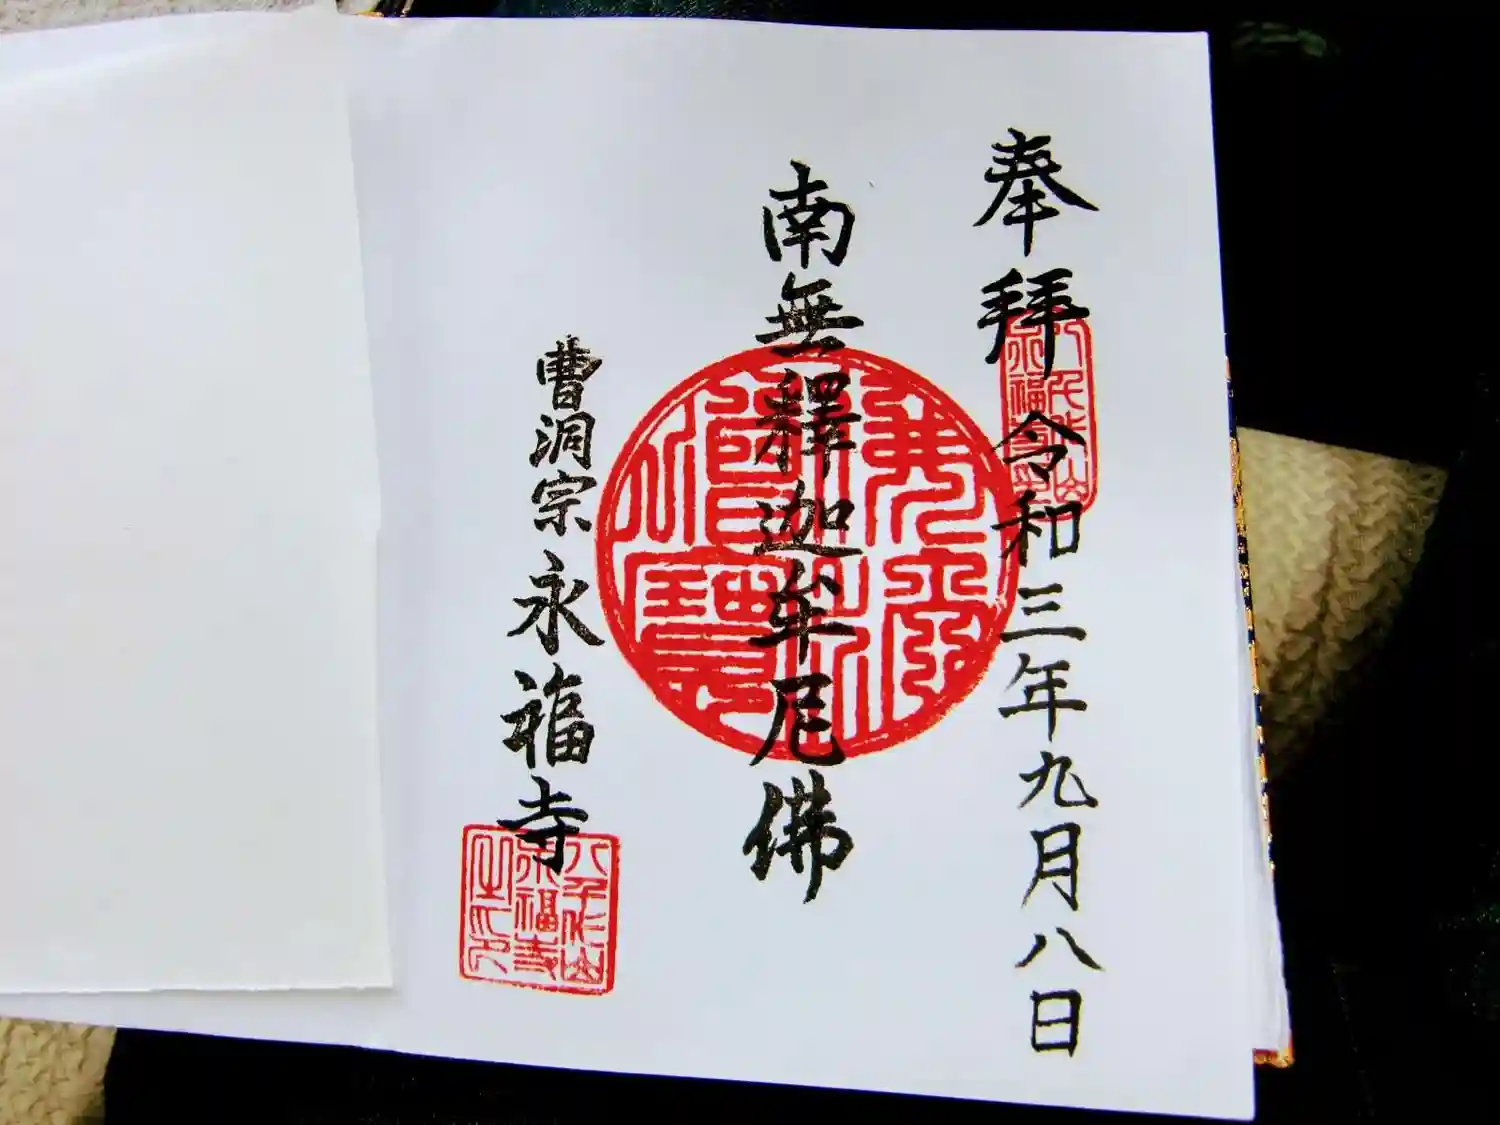 奉拜 令和三年九月八日
南無釋迦牟尼佛
曹洞宗 永福寺